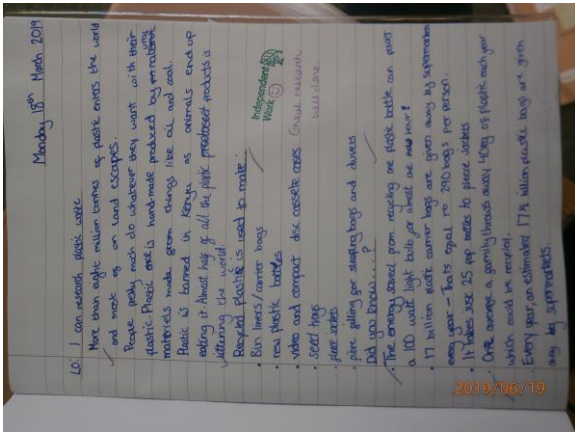 Monday 18th March 2019
LO: I can research plastic waste
More than eight million tonnes of plastic enters the world
and most of on land escapes.
People pretty much do whatever they want with their
plastic. Plastic one is handmade produced by
materials made from things like oil and coal.
Plastic is banned in Kenya as animals end up
eating it. Almost half of all the plastic products is
littering the world.
Recycled plastic is used to make:
Independent
Work
• Bin liners/carrier bags
• new plastic bottles
• video and compact disc cassete cases
research
well done.
• seed trays
• fleece jackets
• fibre filling for sleeping bags and duvets
Did you know.....?
• The energy saved from recycling one plastic bottle can power
a 100 watt light bulb for almost an hour!
• 17 billion plastic carrier bags are given away by supermarkets
every year - Thats equal to 290 bags per person.
• It takes just 25 pop bottles to fleece jackets
• One average a family throws away 40kg of plastic each year
which could be recycling.
• Every year, an estimated 17½ billion plastic bags are given
away by supermarkets.
2019/06/19